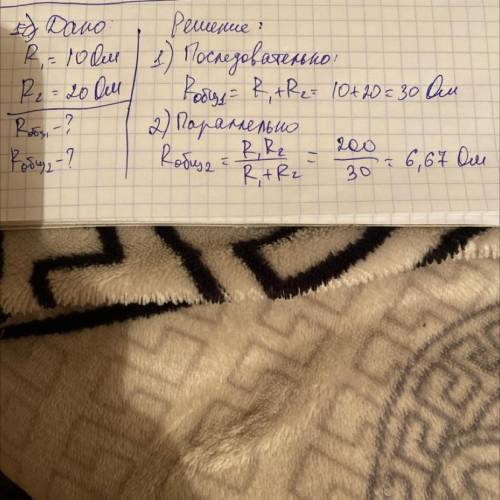 5) Дано:
R₁ = 10 Ом
R₂ = 20 Ом
Rобщ1 - ?
Rобщ2 - ?
Решение:
1) Последовательно:
Rобщ1 = R₁ + R₂ = 10 + 20 = 30 Ом
2) Параллельно
Rобщ2 = R₁R₂ / R₁ + R₂ = 200 / 30 = 6,67 Ом